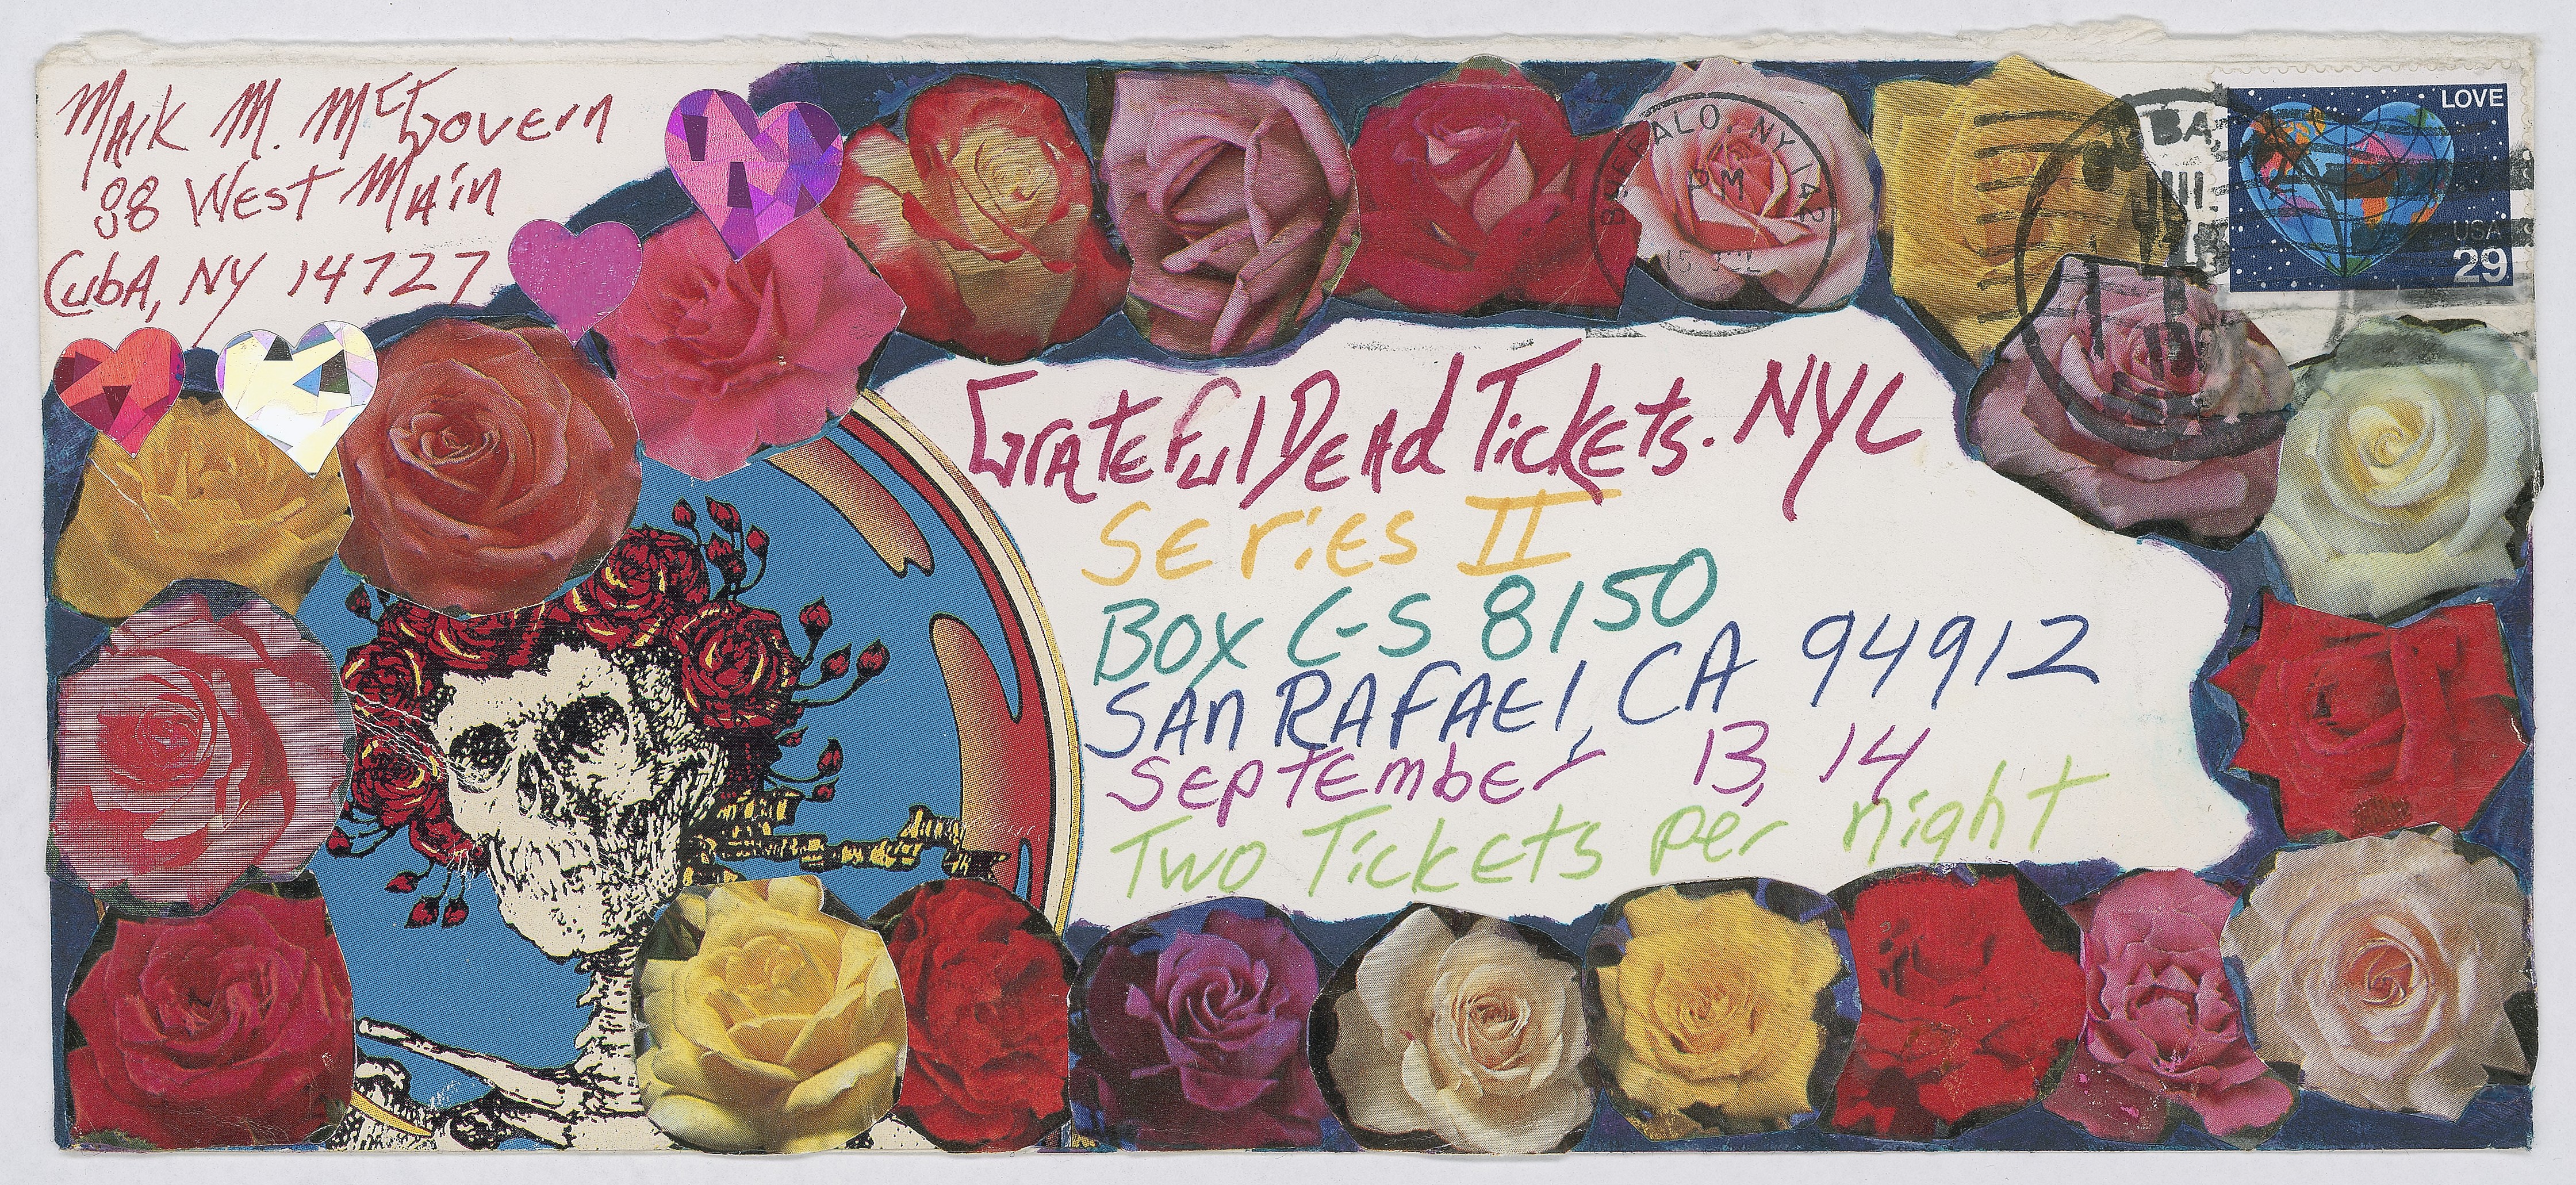 Mark M. McGovern
98 West Main
Cuba, NY 14727
BUFFALO, NY 142
PM
15 JUL
BA,
LOVE
USA
29
Grateful Dead Tickets. NYC
Series II
Box C-S 8150
San Rafael, CA 94912
September 13, 14
Two Tickets per night